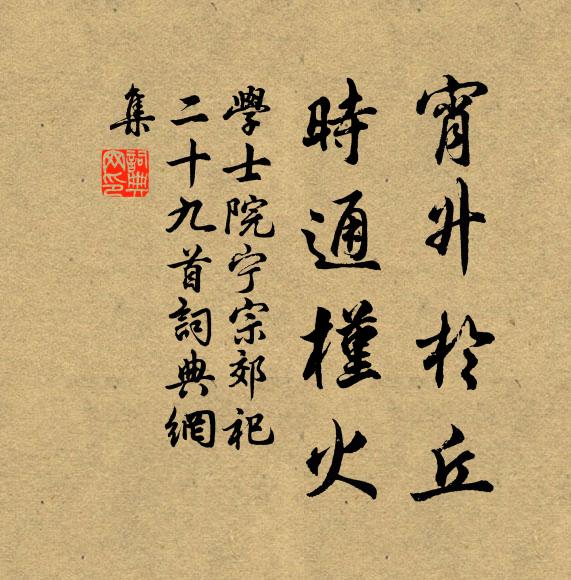 宵升於丘
時通槿火
學士院宁宗郊祀
二十九首詞典網
集
詞典網印